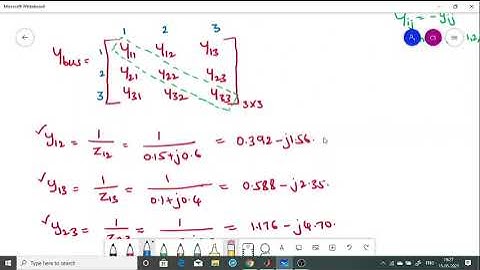 Microsoft Whiteboard
Yij = -yij
1 2 3
Ybus = 1 [ y11 y12 y13
2 y21 y22 y23
3 y31 y32 y33 ] 3x3
✓y12 = 1/Z12 = 1/(0.15+j0.6) = 0.392-j1.56.
✓y13 = 1/Z13 = 1/(0.1+j0.4) = 0.588-j2.35.
✓y23 = 1/Z23 = 1 = 1.176-j4.70.
Type here to search
ENG
15-05-2021